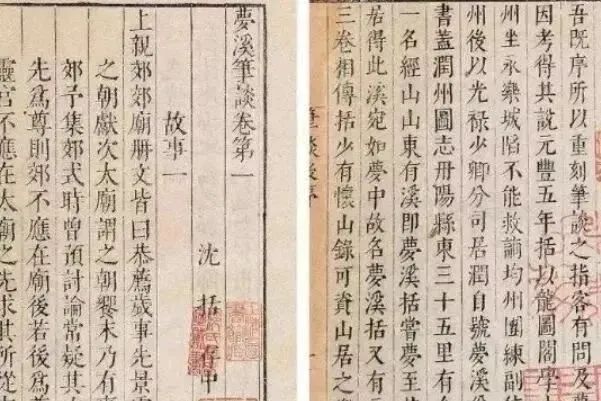 吾既序所以重刻筆談之指客有問及
因考得其説元豐五年括以龍圖閣學
州坐永樂城陷不能救謫均州團練副
州後以光禄少卿分司居潤自號夢溪
書蓋潤州圖志丹陽縣東三十五里有
一名經山山東有溪即夢溪括嘗夢至
居得此溪宛如夢中故名夢溪括又有
三卷相傳括少有懷山錄可資山居之
夢溪筆談卷第一
沈括存中
故事一
上親郊郊廟册文皆曰恭薦歲事先景
之朝獻次太廟謂之朝饗末乃有
郊予集郊式時曾預討論常疑其
先爲尊則郊不應在廟後若後爲
靈宫不應在太廟之先求其所從